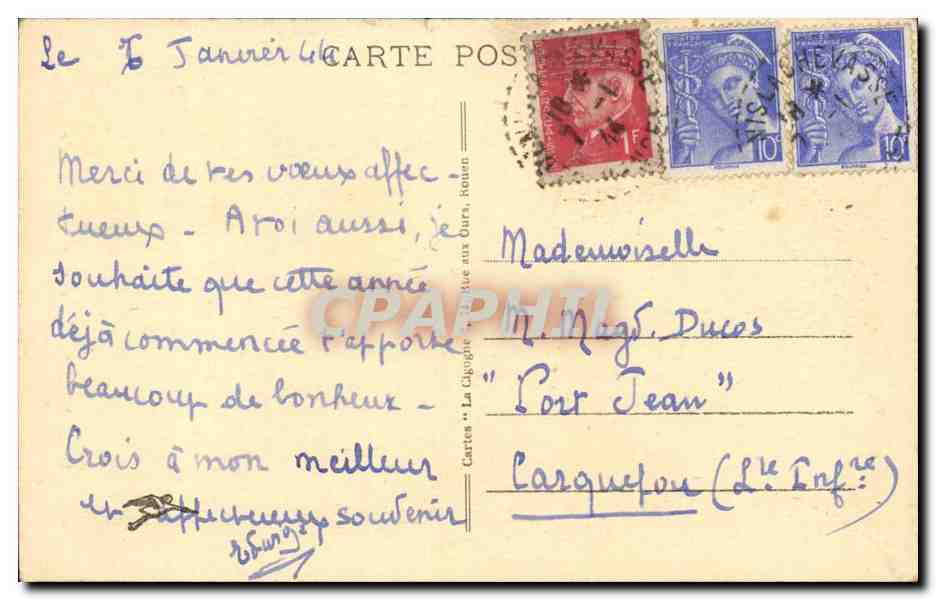 Le 6 Janvier 44
CARTE POS
Merci de tes vœux affec-
tueux - A toi aussi, je
souhaite que cette année
déjà commencée t'apporte
beaucoup de bonheur -
Crois à mon meilleur
et affectueux souvenir
Cartes " La Cigogne Rue aux Ours, Rouen
1F
10
10
CPAPHIL
Mademoiselle
M. Magd. Ducos
"Port Jean"
Carquefou (Lre Infre)